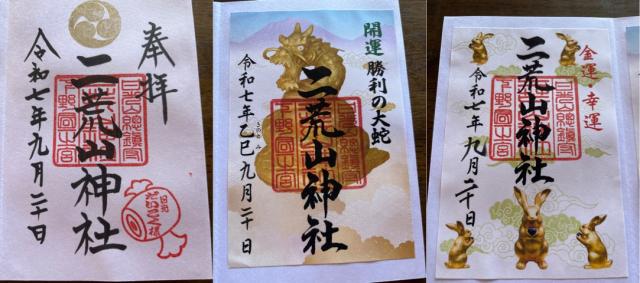 奉拝
二荒山神社
令和七年九月二十日
日光
だいこく様
開運
勝利の大蛇
二荒山神社
令和七年乙巳九月二十日
きのとみ
金運・幸運
二荒山神社
令和七年九月二十日